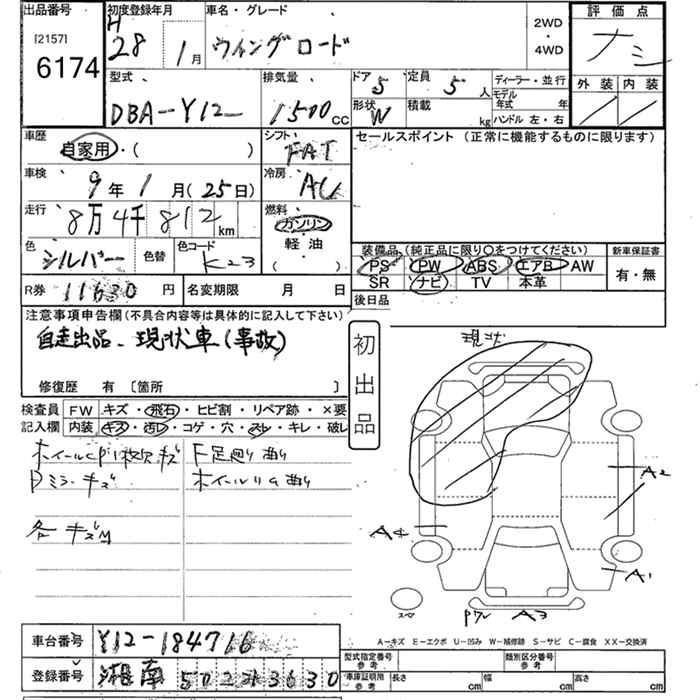 出品番号 初度登録年月 車名・グレード 評価点
[2157] H 2WD
6174 28 1月 ウィングロード ・ ナシ
4WD
外装 内装
型式 排気量 ドア 5 定員 5人 ディーラー・並行
DBA-Y12 1500CC 形状 W 積載 kg モデル年式 年
ハンドル 左・右
車歴 シフト セールスポイント(正常に機能するものに限ります)
自家用・( ) FAT
車検 冷房
9年1月(25日) AC
走行 燃料
8万4千812km ガソリン
色 シルバー 色替 色コード K23 軽油
( )
装備品(純正品に限り○をつけてください) 新車保証書
PS PW ABS エアB AW 有・無
SR ナビ TV 本革
R券 11630円 名変期限 月 日 後日品
注意事項申告欄(不具合内容等は具体的に記入して下さい)
自走出品、現状車(事故)
初出品
現状
修復歴 有〔箇所 〕
検査員 FW キズ・飛石・ヒビ割・リペア跡・×要
記入欄 内装 キズ・汚レ・コゲ・穴・スレ・キレ・破レ
ホイールCP1枚欠キズ F足廻り曲り
Dミラーキズ ホイールリム曲り
各キズM
A2
A4
A1
A3
A-キズ E-エクボ U-凹み W-補修跡 S-サビ C-腐食 XX-交換済
車台番号 Y12-184716
型式指定番号 参考 類別区分番号 参考
登録番号 湘南 502 3630
車庫証明用参考 長さ cm 幅 cm 高さ cm